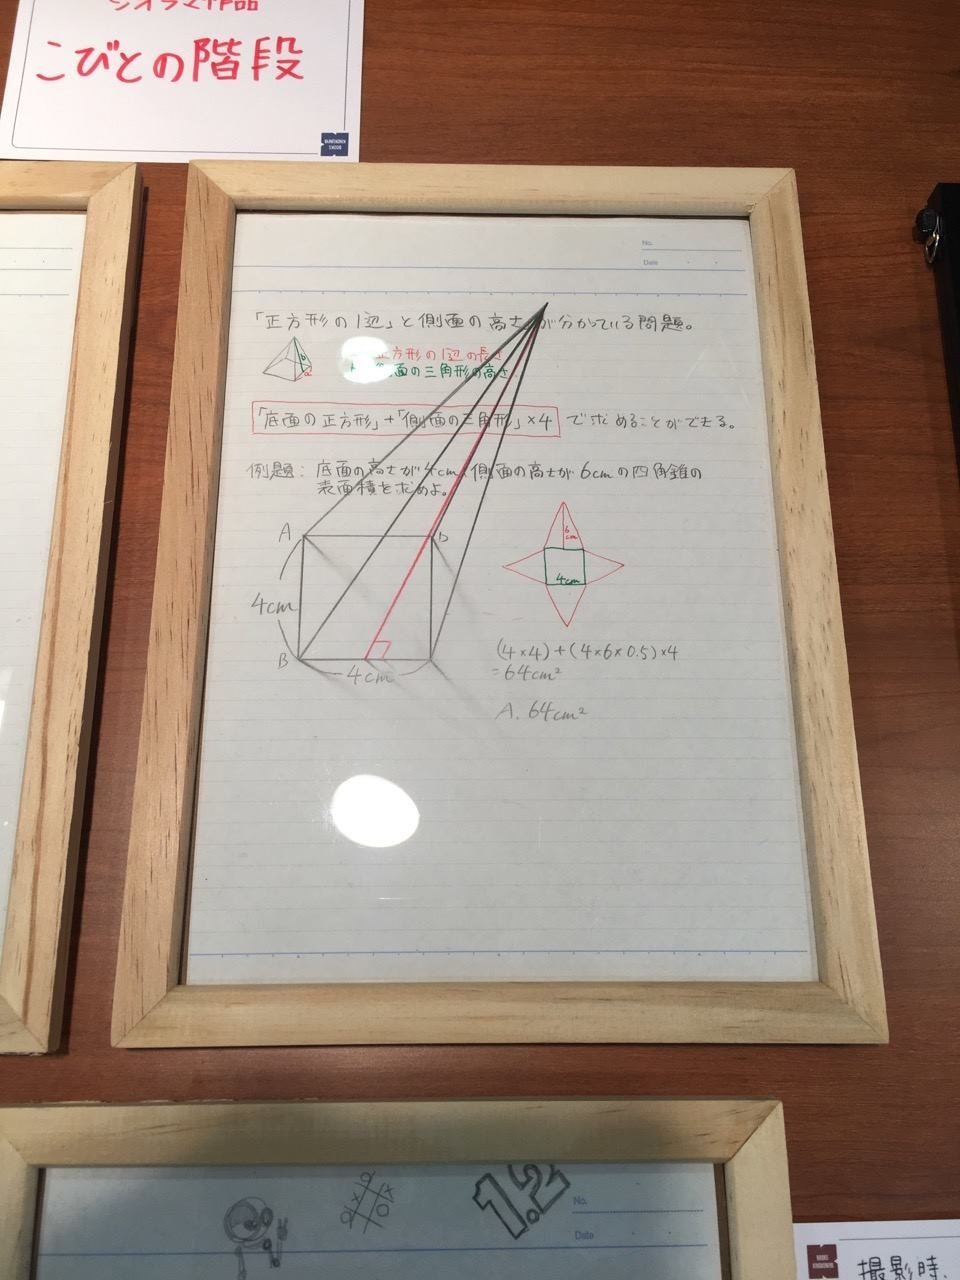 ジオラマ作品
こびとの階段
No.
Date
「正方形の1辺」と側面の高さが分かている問題。
正方形の1辺の長さ
面の三角形の高さ
「底面の正方形」+「側面の三角形」×4 で求めることができる。
例題: 底面の高さが4cm、側面の高さが6cmの四角錐の
表面積を求めよ。
A
D
4cm
B
4cm
6
cm
4cm
(4×4)+(4×6×0.5)×4
=64cm²
A. 64cm²
1.2
No.
Date
撮影時、